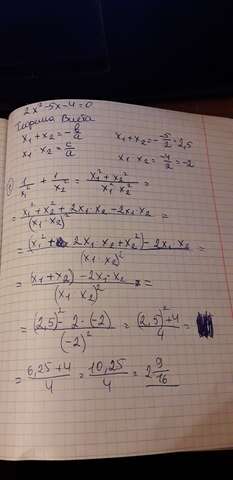 2x²-5x-4=0
Теорема Виета
x₁+x₂=-b/a x₁+x₂=-(-5/2)=2,5
x₁ x₂=c/a x₁ x₂=-4/2=-2
1/x₁² + 1/x₂² = (x₁²+x₂²)/(x₁² x₂²) =
= (x₁²+x₂²+2x₁ x₂-2x₁ x₂)/(x₁ x₂)² =
= ((x₁²+2x₁ x₂+x₂²)-2x₁ x₂)/(x₁ x₂)² =
= ((x₁+x₂)²-2x₁ x₂)/(x₁ x₂)² =
= ((2,5)²-2·(-2))/(-2)² = ((2,5)²+4)/4 =
= (6,25+4)/4 = 10,25/4 = 2 9/16